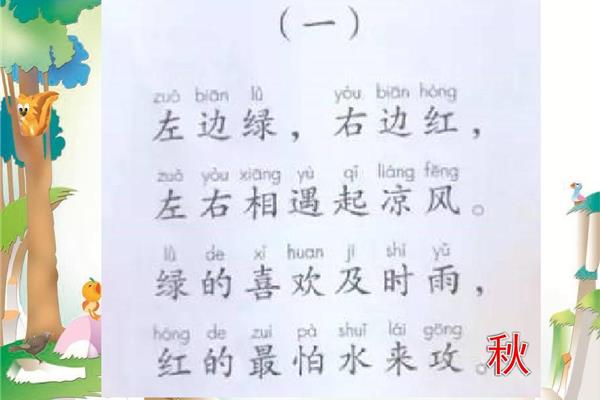 （一）
zuǒ biān lǜ yòu biān hóng
左边绿，右边红，
zuǒ yòu xiāng yù qǐ liáng fēng
左右相遇起凉风。
lǜ de xǐ huan jí shí yǔ
绿的喜欢及时雨，
hóng de zuì pà shuǐ lái gōng
红的最怕水来攻。
秋